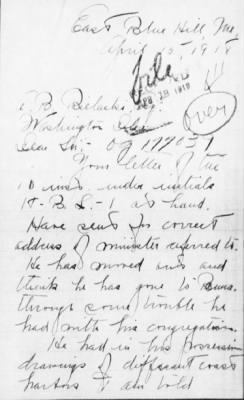 East Blue Hill, Me.
April 15 1918
File
over
Washington
Dear Sir:- OG 177051
Your letter of the
10 inst. under initials
H-B L-1 at hand.
Have sent for correct
address of minister referred to.
He has moved and
think he has gone to
through some trouble he
had with his congregation.
He had in his possession
drawings of different coast
harbors I am told